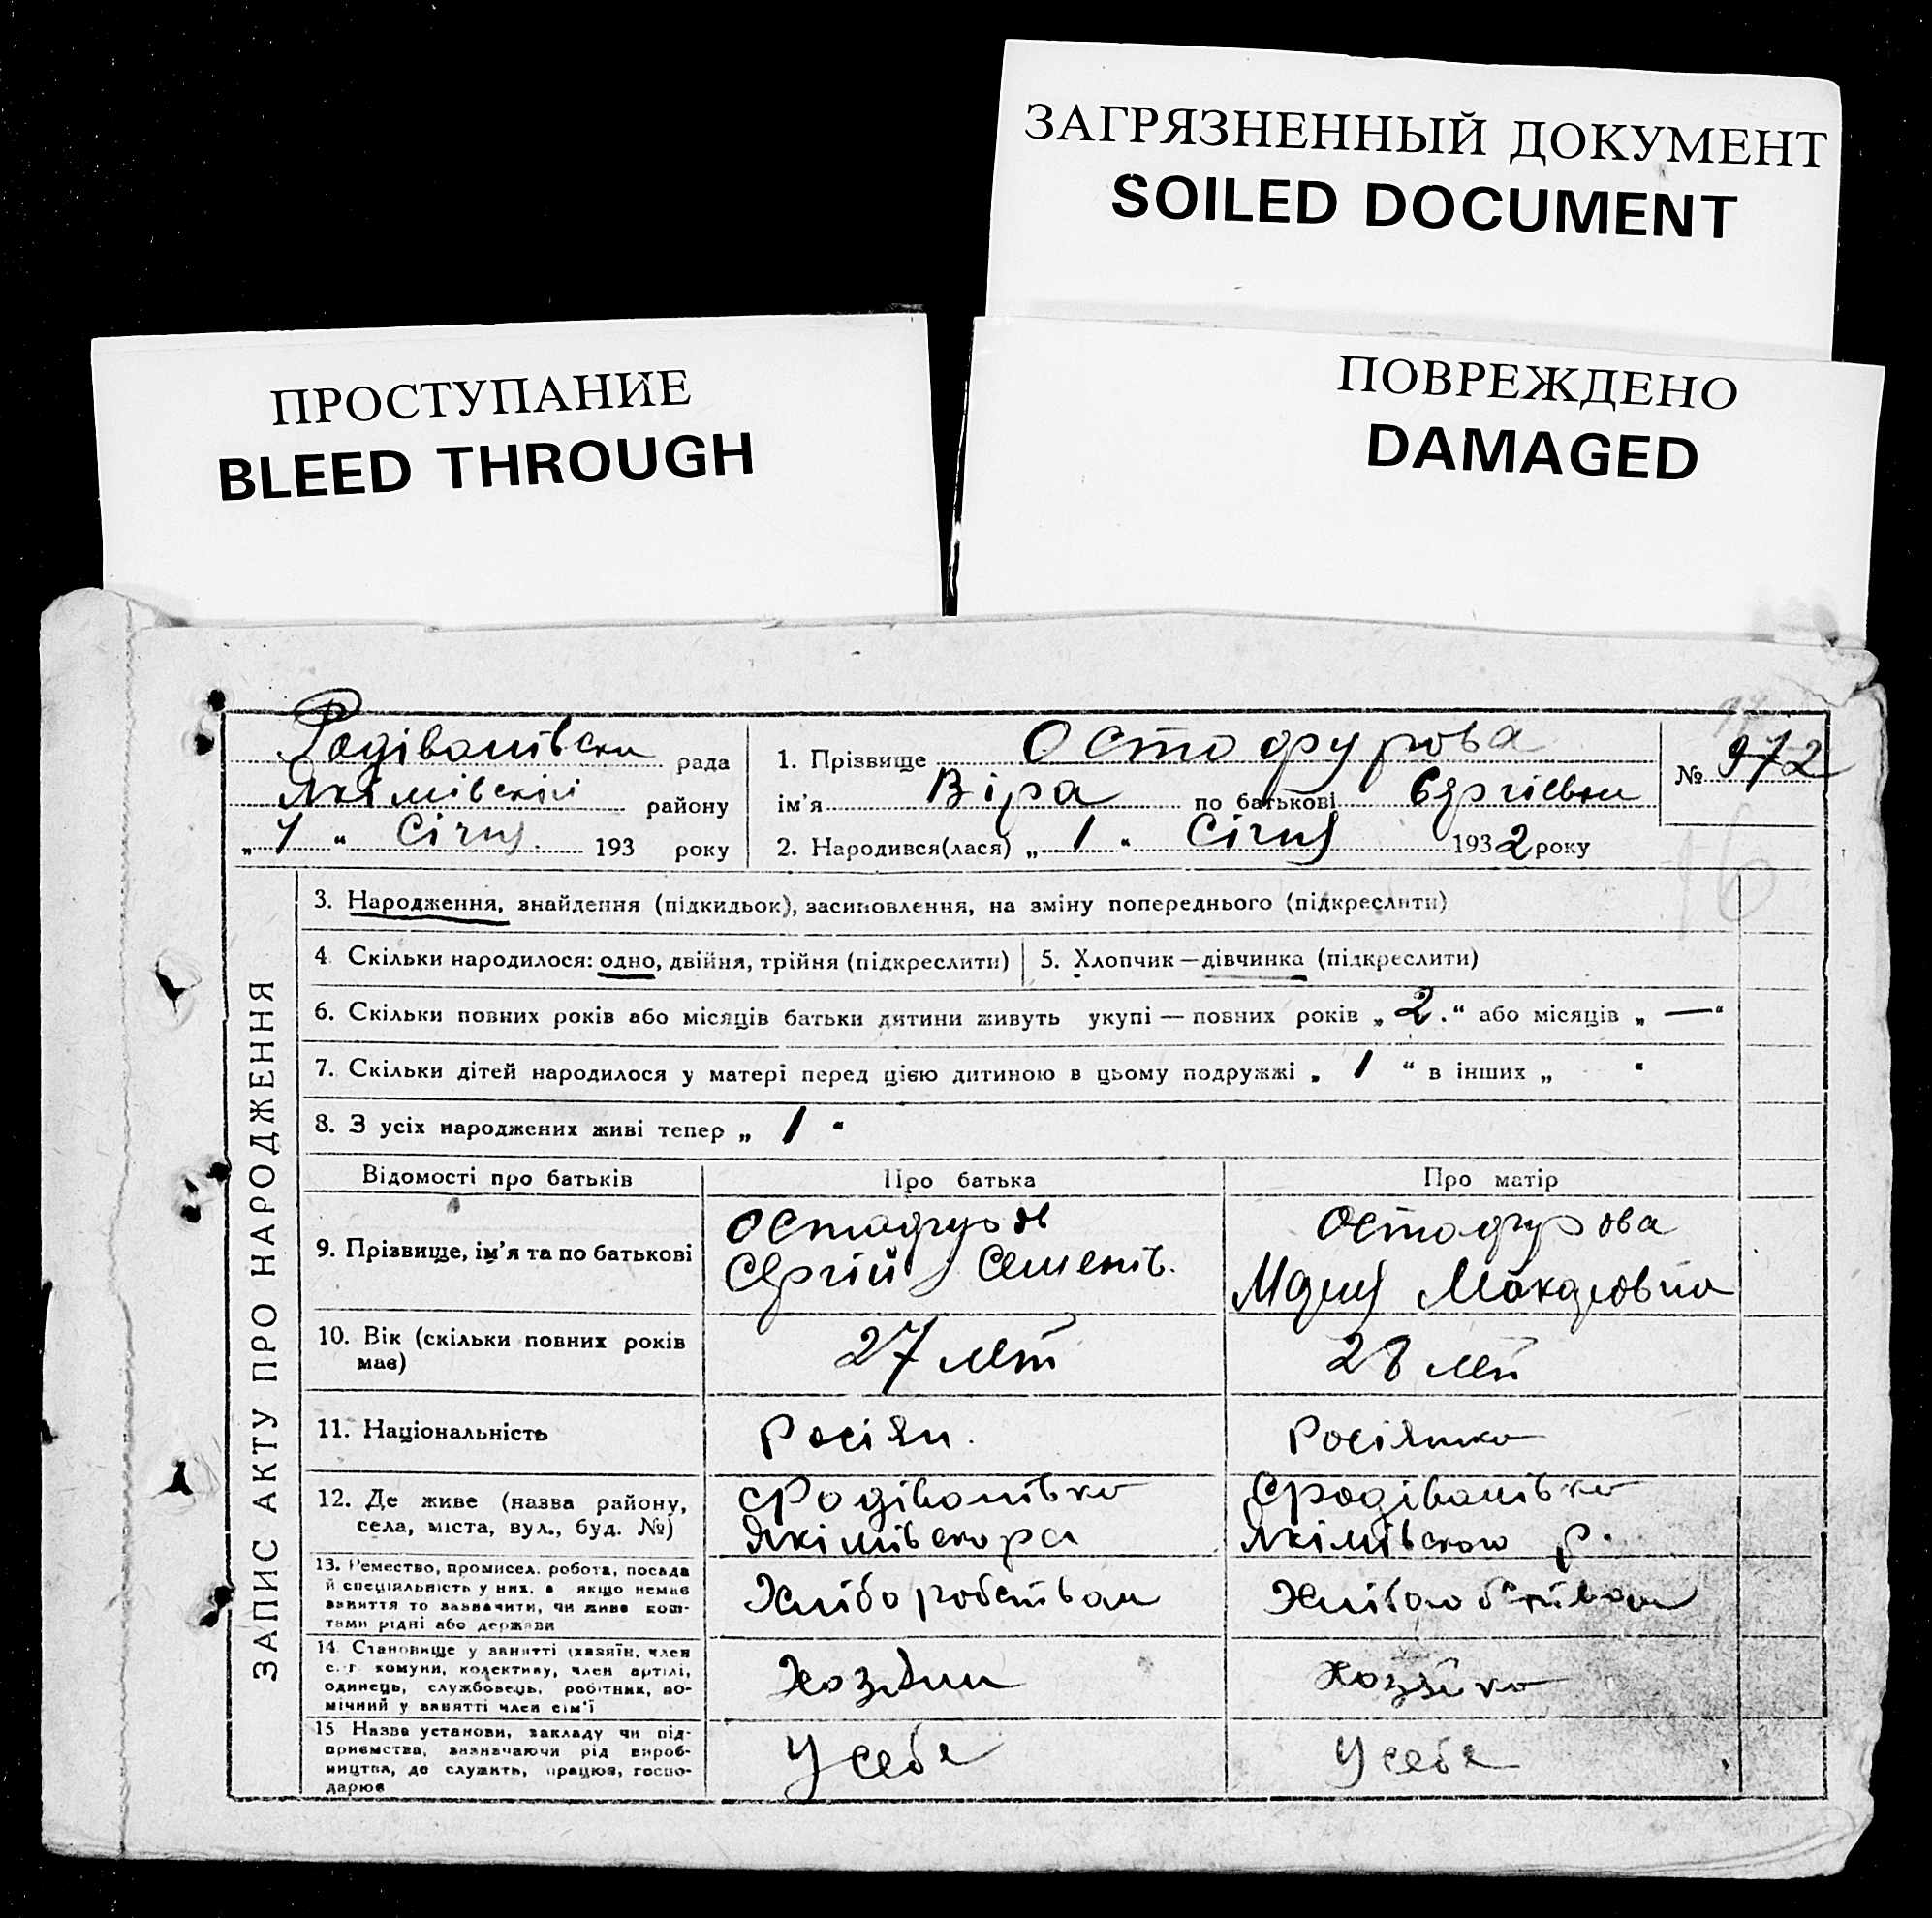 ЗАГРЯЗНЕННЫЙ ДОКУМЕНТ
SOILED DOCUMENT
ПРОСТУПАНИЕ
BLEED THROUGH
ПОВРЕЖДЕНО
DAMAGED
Родіванівська рада
Якімівський району
„ 1 “ Січня 193 року
1. Прізвище Остафурова
ім'я Віра по батькові Сергіевна
2. Народився(лася) „ 1 “ Січня 1932 року
№ 972
16
ЗАПИС АКТУ ПРО НАРОДЖЕННЯ
3. Народження, знайдення (підкидьок), засиновлення, на зміну попереднього (підкреслити)
4. Скільки народилося: одно, двійня, трійня (підкреслити)
5. Хлопчик — дівчинка (підкреслити)
6. Скільки повних років або місяців батьки дитини живуть укупі — повних років „ 2. “ або місяців „ — “
7. Скільки дітей народилося у матері перед цією дитиною в цьому подружжі „ 1 “ в інших „ “
8. З усіх народжених живі тепер „ 1 “
Відомості про батьків Про батька Про матір
9. Прізвище, ім'я та по батькові
Остафуров
Сергій Семенів.
Остафурова
Макаровна
10. Вік (скільки повних років
має)
27 літ
28 літ
11. Національність
Росіян.
Росіянка
12. Де живе (назва району,
села, міста, вул., буд. №)
Родіванівка
Якімівского ра
Родіванівка
Якімівского р.
13. Ремество, промисел, робота, посада
й спеціяльність у них, а якщо немає
заняття то зазначити, чи живе кош-
тами рідні або держави
Хліборобством
Хліборобством
14. Становище у занятті (хазяїн, член
с.-г. комуни, колективу, член артілі,
одинець, службовець, робітник, по-
мічний у занятті член сім'ї
Хозяин
Хозяйка
15. Назва установи, закладу чи під-
приємства, зазначаючи рід вироб-
ництва, де служить, працює, госпо-
дарює
У себе
У себе